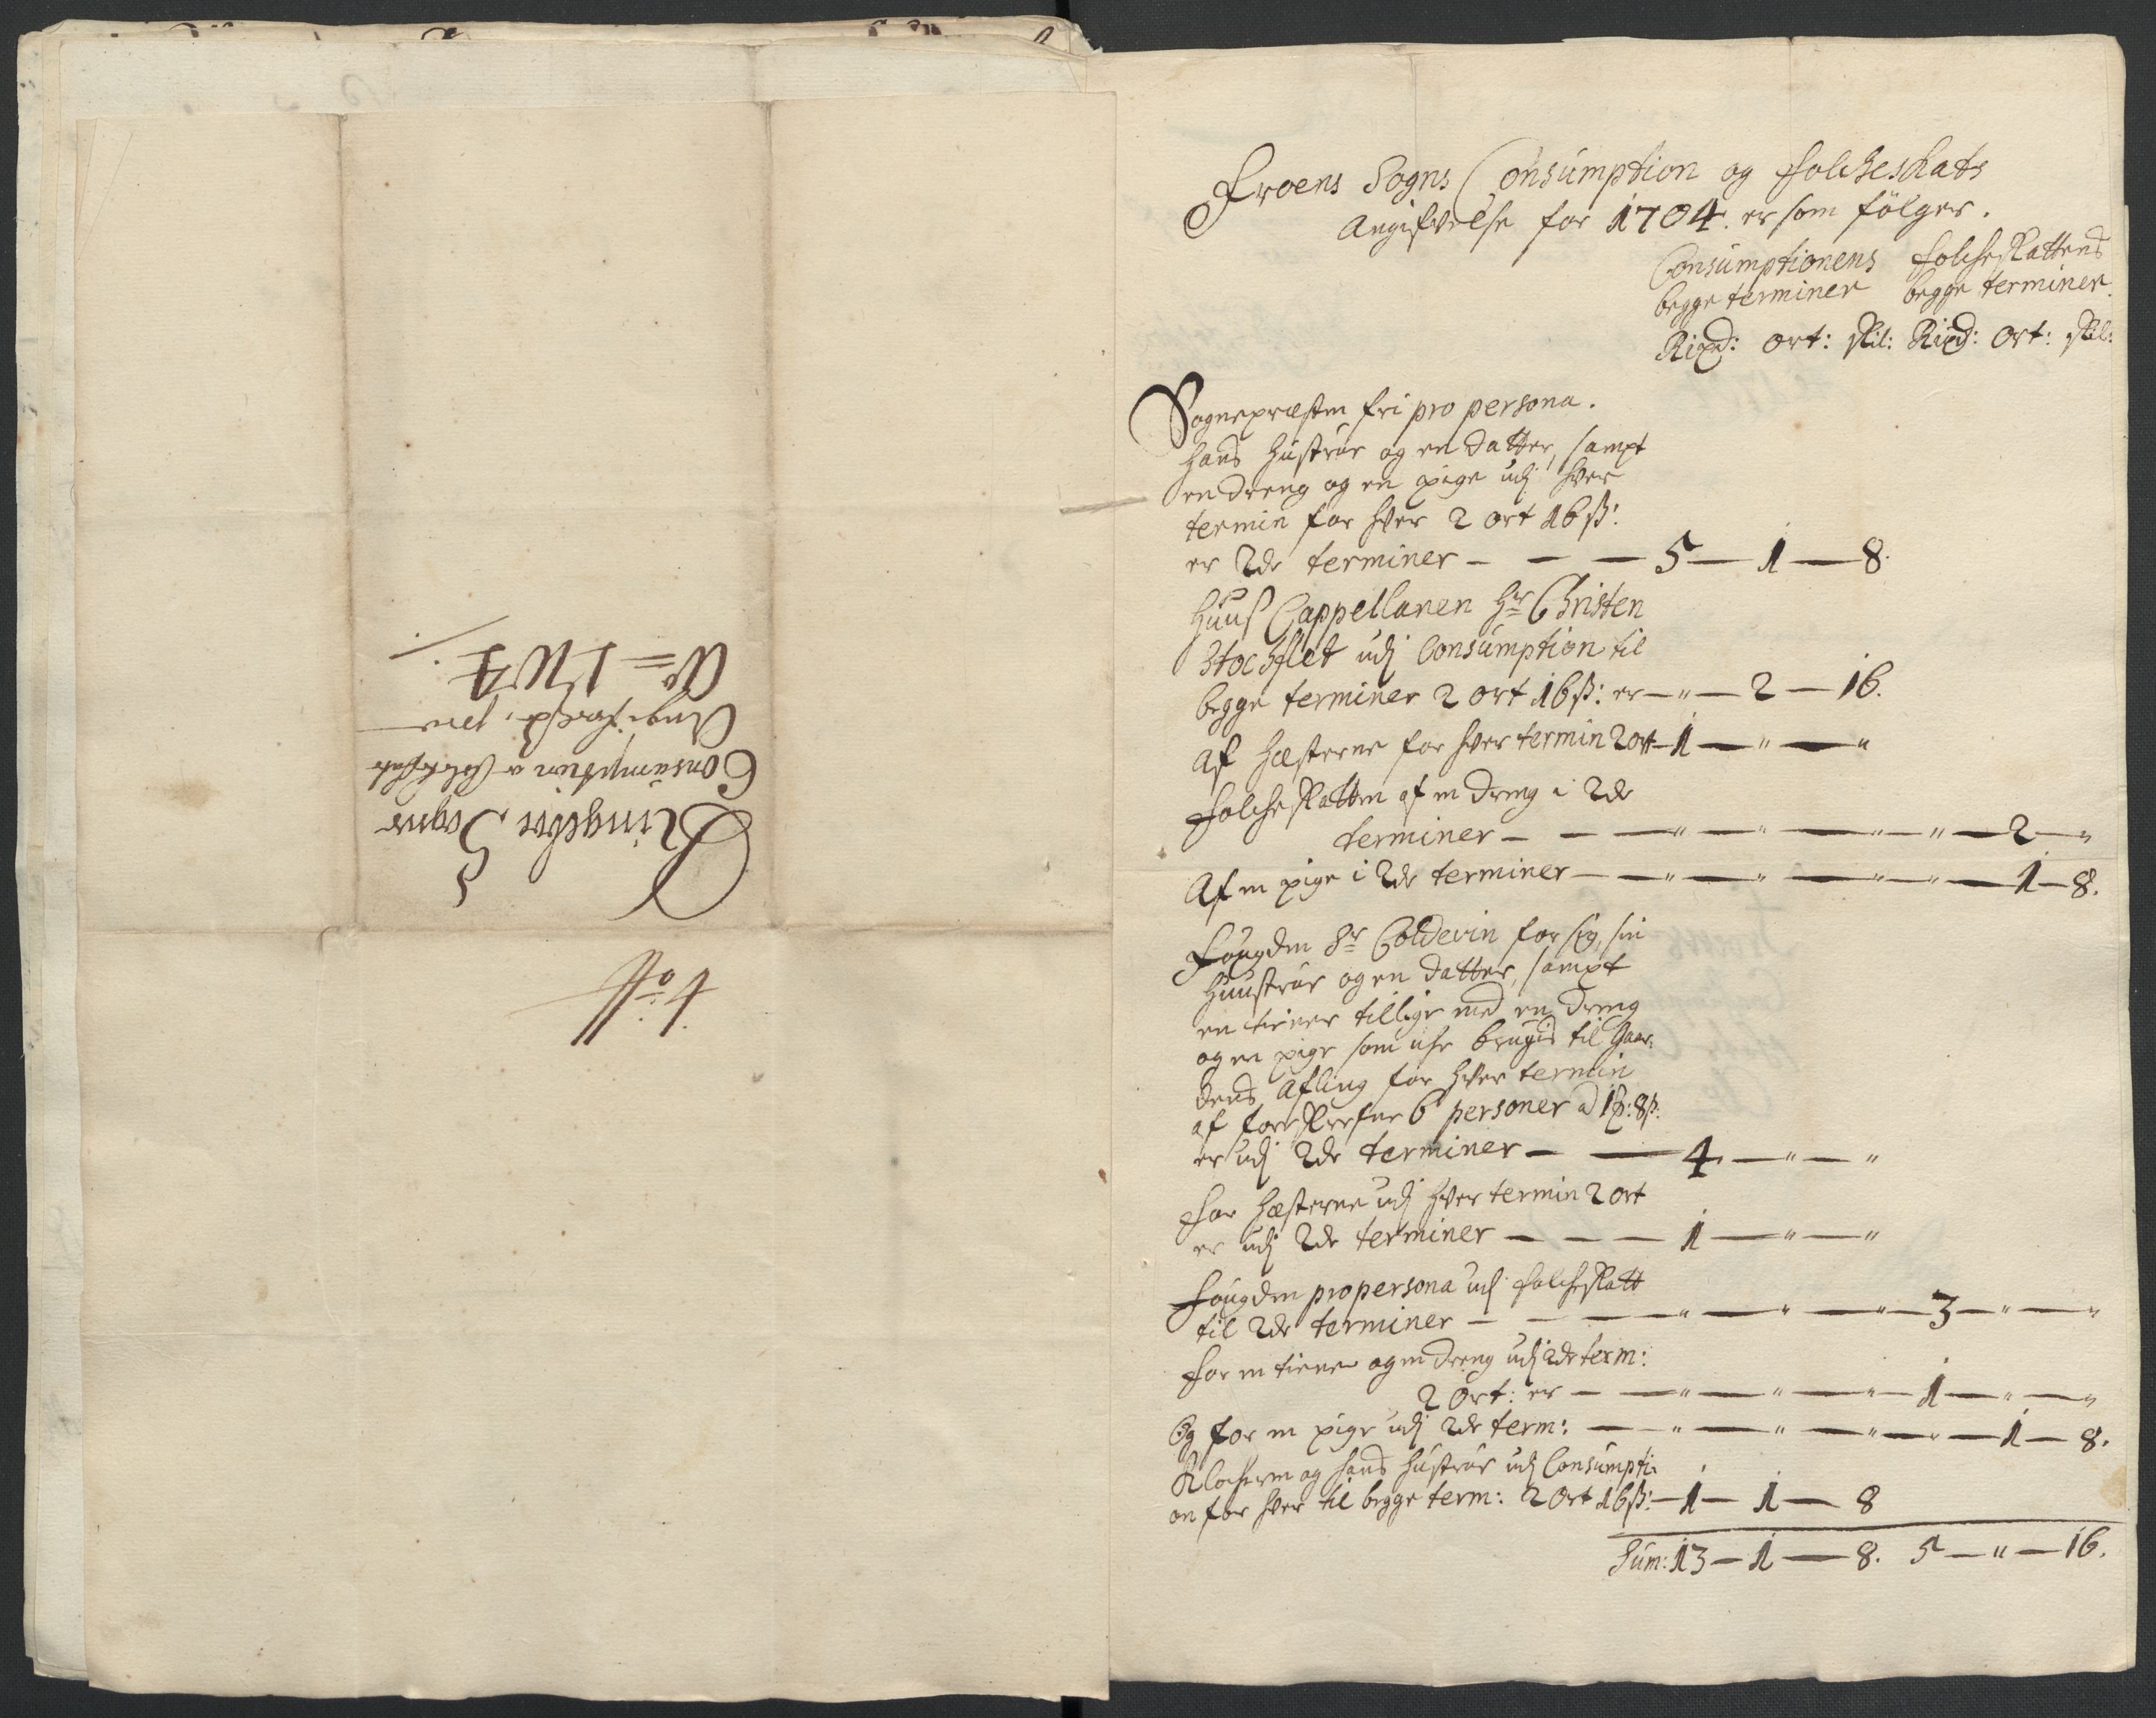 Ringeboe Sogns
Consumption o folcheskats
Angifvelse, pro
Ao = 1704
No. 4.
Froens Sogns Consumption og folcheskats
Angifvelse for 1704. er som fölger.
Consumptionens folcheskattens
begge terminer begge terminer.
Rixd: ort: skil: Rixd: Ort: skil:
Sognepræsten fri pro persona.
hans hustrue og en datter, sampt
en dreng og en pige udj hver
termin for hver 2 ort 16 ß:
er 2de terminer - — — 5 — 1 — 8.
Huus Cappellanen Hr Christen
Stochflet udj Consumption til
begge terminer 2 ort 16 ß: er — " — 2 — 16.
af hæsterne for hver termin 2 ort — 1 — " — "
folcheskatten af en dreng i 2de
terminer — — — " — " — " — " — 2 — "
Af en pige i 2de terminer — — " — " — " — " — 1 — 8.
Fougden Sr Coldevin for sig, sin
Huustrue og en datter, sampt
en tiener tillige med en dreng
og en pige som icke brugis til gaar-
dens Afling for hver termin
af foreskrefne 6 personer a 1 ort: 8 ß.
er udj 2de terminer — — 4 — " — "
for hæsterne udj hver termin 2 ort
er udj 2de terminer — — — 1 — " — "
fougden pro persona udj folcheskatt
til 2de terminer — — — " — " — " — 3 — " — "
for en tiener og en dreng udj 2de term:
2 Ort: er — — " — " — " — 1 — " — "
Og for en pige udj 2de term: — — " — " — " — " — 1 — 8.
Klocheren og hans hustrue udj Consumpti-
on for hver til begge term: 2 Ort 16 ß: — 1 — 1 — 8
Sum: 13 — 1 — 8. 5 — " — 16.